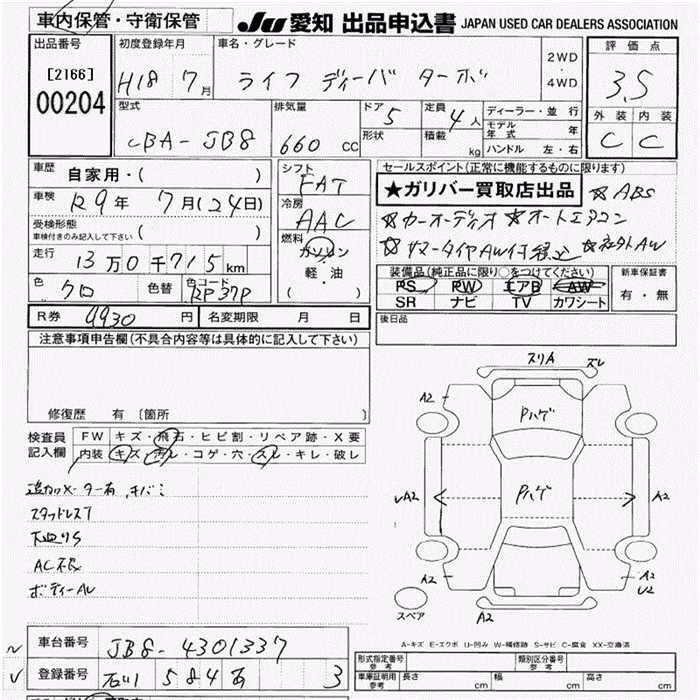 車内保管・守衛保管 JU 愛知 出品申込書 JAPAN USED CAR DEALERS ASSOCIATION
出品番号 初度登録年月 車名・グレード 評価点
[2166] H18 7月 ライフ ディーバ ターボ 2WD 4WD 3.5
00204
型式 排気量 ドア 5 定員 4人 ディーラー・並行 外装 内装
CBA-JB8 660 cc 形状 積載 kg モデル年式 年 C C
ハンドル 左・右
車歴 自家用・( ) シフト FAT セールスポイント(正常に機能するものに限ります)
車検 R9年 7月(24日) 冷房 AAC ★ガリバー買取店出品 ☆ABS
受検形態 ( ) ☆カーオーディオ ☆オートエアコン
車検付きのみ記入して下さい 燃料 ガソリン ☆サマータイヤAW付積込 ☆社外AW
走行 13万0千715km 軽・油 装備品(純正品に限り○をつけてください) 新車保証書
色 クロ 色替 色コード RP37P ( ) PS PW エアB AW 有・無
SR ナビ TV カワシート
R券 9930円 名変期限 月 日 後日品
注意事項申告欄(不具合内容等は具体的に記入して下さい)
修復歴 有 [箇所 ]
検査員 FW キズ・飛石・ヒビ割・リペア跡・X要
記入欄 内装 キズ・汚レ・コゲ・穴・スレ・キレ・破レ
追加メーター有 キバミ
スタッドレスT
下廻りS
AC不良
ボディーAU
スリA ズレ
A2 Pハゲ
A2 Pハゲ A2
A2 A2
U2
スペア A2
A-キズ E-エクボ U-凹み W-補修跡 S-サビ C-腐食 XX-交換済
車台番号 JB8-4301337 形式指定番号 参考 類別区分番号 参考
登録番号 石川 584 あ 3 車庫証明用 参考 長さ cm 幅 cm 高さ cm